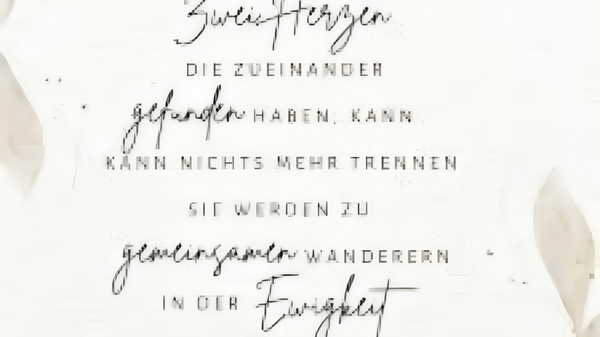 Zwei Herzen
DIE ZUEINANDER
gefunden HABEN, KANN
KANN NICHTS MEHR TRENNEN
SIE WERDEN ZU
gemeinsamen WANDERERN
IN DER Ewigkeit